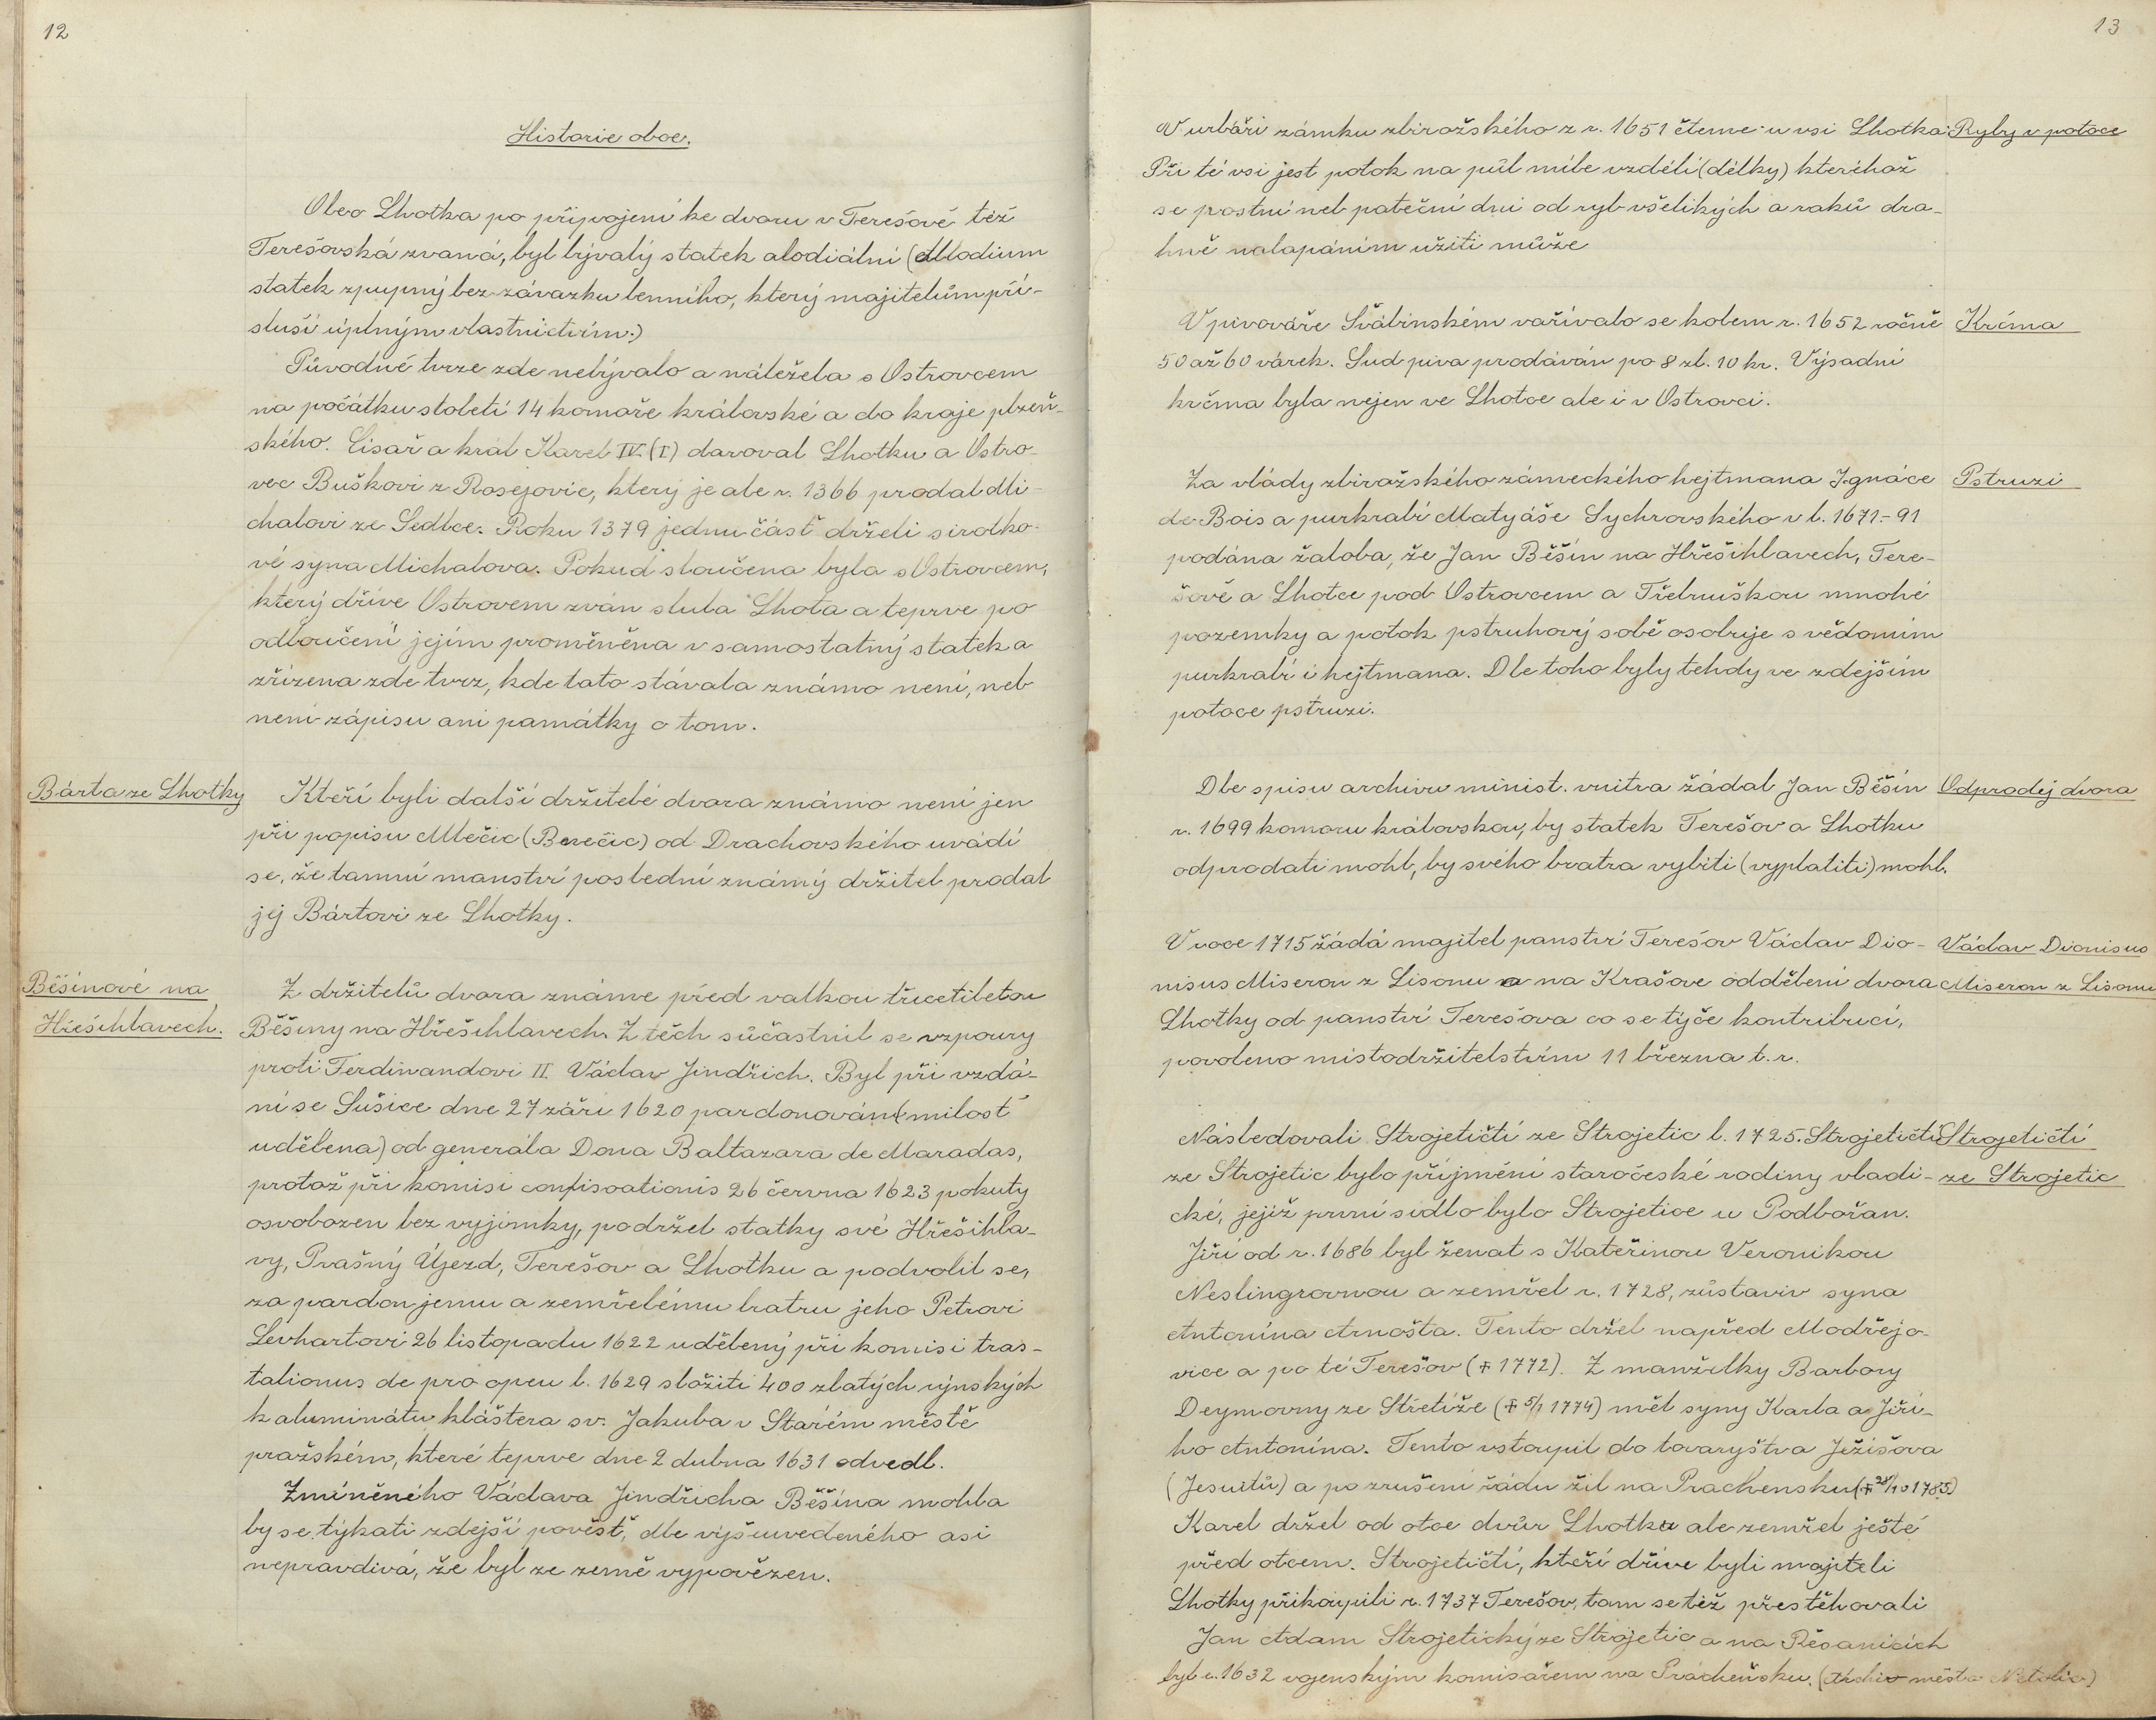 12
Historie obce.
Obec Lhotka po připojení ke dvoru v Terešově též
Terešovská zvaná, byl bývalý statek alodiální (Allodium
statek zpupný bez závazku lenního, který majitelům pří-
sluší úplným vlastnictvím.)
Původně tvrze zde nebývalo a náležela s Ostrovcem
na počátku století 14 komoře královské a do kraje plzeň-
ského. Císař a král Karel IV. (I) daroval Lhotku a Ostro-
vec Buškovi z Rosejovic, který je ale r. 1366 prodal Mi-
chalovi ze Sedlce. Roku 1379 jednu část drželi sirotko-
vé syna Michalova. Pokud sloučena byla s Ostrovcem,
který dříve Ostrovem zván slula Lhota a teprve po
odloučení jejím proměněna v samostatný statek a
zřízena zde tvrz, kde tato stávala známo není, neb
není zápisu ani památky o tom.
Bárta ze Lhotky
Kteří byli další držitelé dvora známo není jen
při popisu Mlečic (Brečic) od Drachovského uvádí
se, že tamní manství poslední známý držitel prodal
jej Bártovi ze Lhotky.
Běšínové na
Hřešihlavech.
Z držitelů dvora známe před valkou třicetiletou
Běšiny na Hřešihlavech. Z těch súčastnil se vzpoury
proti Ferdinandovi II. Václav Jindřich. Byl při vzdá-
ní se Sušice dne 27 září 1620 pardonován (milost
udělena) od generála Dona Baltazara de Maradas,
protož při komisi confiscationis 26 června 1623 pokuty
osvobozen bez vyjímky, podržel statky své Hřešihla-
vy, Prašný Újezd, Terešov a Lhotku a podvolil se,
za pardon jemu a zemřelému bratru jeho Petrovi
Levhartovi 26 listopadu 1622 udělený při komisi tras-
talionus de pro opeu l. 1629 složiti 400 zlatých rýnských
k aluminátu kláštera sv. Jakuba v Starém městě
pražském, které teprve dne 2 dubna 1631 odvedl.
Zmíněného Václava Jindřicha Běšína mohla
by se týkati zdejší pověst, dle výšeuvedeného asi
nepravdivá, že byl ze země vypovězen.
13
V urbáři zámku zbirožského z r. 1651 čteme u vsi Lhotka:
Ryby v potoce
Při té vsi jest potok na půl míle vzdélí (délky) kteréhož
se postní neb pateční dni od ryb všelikých a raků dra-
hně nalapáním užiti může
V pivováře Švábinském vařívalo se kolem r. 1652 ročně
Krčma
50 až 60 várek. Sud piva prodáván po 8 zl. 10 kr. Výsadní
krčma byla nejen ve Lhotce ale i v Ostrovci.
Za vlády zbirožského zámeckého hejtmana Ignáce
Pstruzi
de Bois a purkrabí Matyáše Sychrovského v l. 1671-91
podána žaloba, že Jan Běšín na Hřešihlavech, Tere-
šově a Lhotce pod Ostrovcem a Třebnuškou mnohé
pozemky a potok pstruhový sobě osobuje s vědomím
purkrabí i hejtmana. Dle toho byly tehdy ve zdejším
potoce pstruzi.
Dle spisu archivu minist. vnitra žádal Jan Běšín
Odprodej dvora
r. 1699 komoru královskou, by statek Terešov a Lhotku
odprodati mohl, by svého bratra vybíti (vyplatiti) mohl.
V roce 1715 žádá majitel panství Terešov Václav Dio-
Václav Dionisus
nisus Miseron z Lisonu a na Krašove oddělení dvora
Miseron z Lisonu
Lhotky od panství Terešova co se týče kontribucí,
povoleno místodržitelstvím 11 března t. r.
Následovali Strojetičtí ze Strojetic l. 1725. Strojetičtí
Strojetičtí
ze Strojetic bylo příjmění staročeské rodiny vladi-
ze Strojetic
cké, jejíž první sídlo bylo Strojetice u Podbořan.
Jiří od r. 1686 byl ženat s Kateřinou Veronikou
Neslingrovnou a zemřel r. 1728, zůstaviv syna
Antonína Arnošta. Tento držel napřed Modřejo-
vice a po té Terešov (+ 1772). Z manželky Barbory
Deymovny ze Střetíže (+ 5/1 1774) měl syny Karla a Jiří-
ho Antonína. Tento vstoupil do tovaryštva Ježíšova
(Jesuitů) a po zrušení řádu žil na Prachensku (+ 28/10 1785)
Karel držel od otce dvůr Lhotka ale zemřel ještě
před otcem. Strojetičtí, kteří dříve byli majiteli
Lhotky přikoupili r. 1737 Terešov, tam se též přestěhovali
Jan Adam Strojetický ze Strojetic a na Řčanicích
byl r. 1632 vojenským komisařem na Prácheňsku. (Archiv města Netolic)